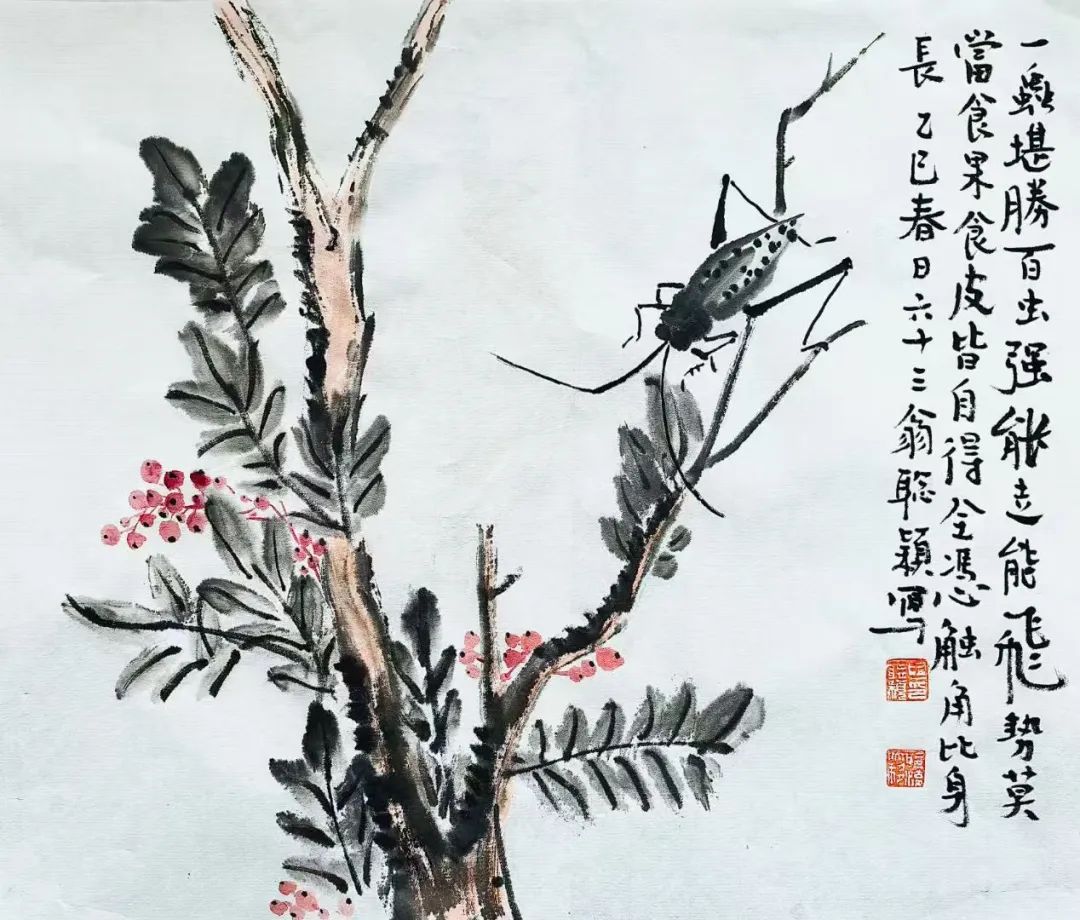 一蟲堪勝百虫强能走能飛势莫
當食果食皮皆自得全馮心触角比身
長 乙巳春日六十三翁聪颖写